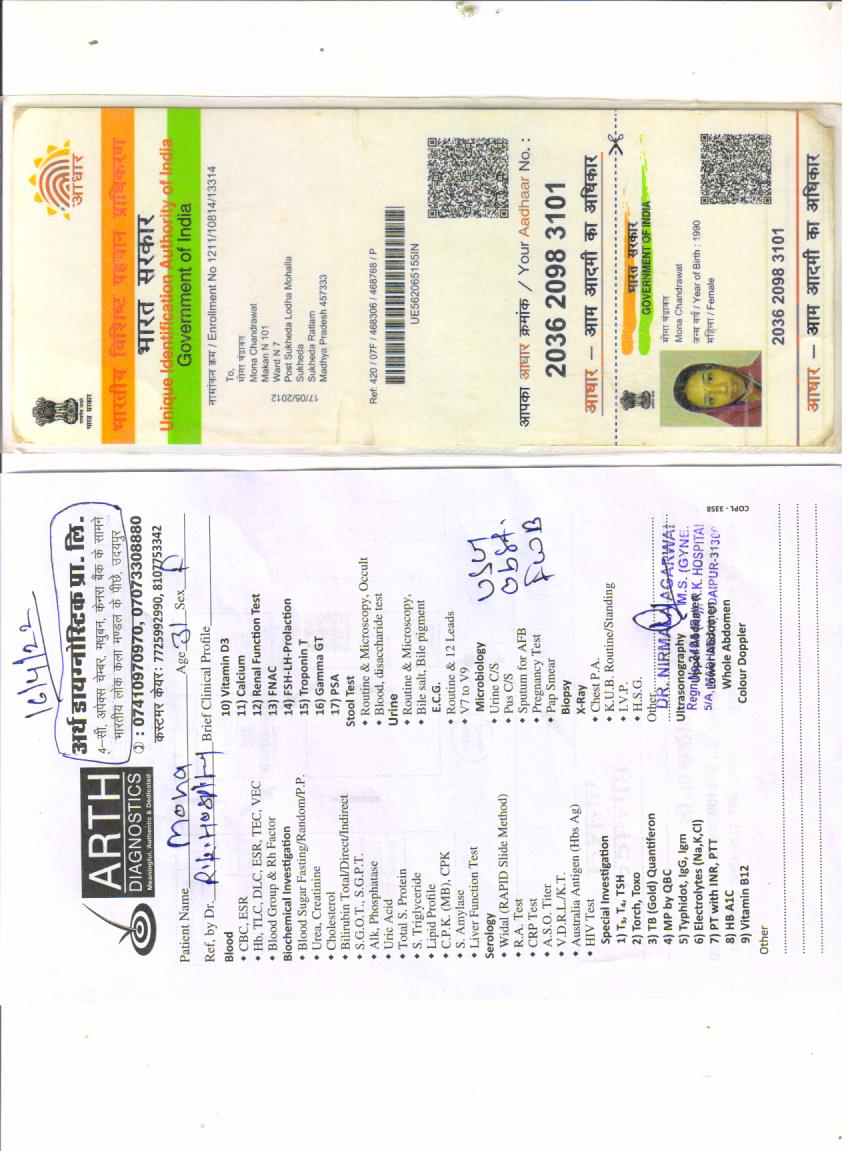 आधार
भारतीय विशिष्ट पहचान प्राधिकरण
भारत सरकार
Unique Identification Authority of India
Government of India
भारत सरकार
नामांकन क्रम / Enrollment No 1211/10814/13314
To,
मोना चंद्रावत
Mona Chandrawat
Makan N 101
Ward N 7
Post Sukheda Lodha Mohalla
Sukheda
Sukheda Ratlam
Madhya Pradesh 457333
17/05/2012
Ref: 420 / 07F / 468306 / 468768 / P
UE562065155IN
आपका आधार क्रमांक / Your Aadhaar No. :
2036 2098 3101
आधार – आम आदमी का अधिकार
भारत सरकार
GOVERNMENT OF INDIA
मोना चंद्रावत
Mona Chandrawat
जन्म वर्ष / Year of Birth : 1990
महिला / Female
2036 2098 3101
आधार – आम आदमी का अधिकार
16/4/22
ARTH
DIAGNOSTICS
Meaningful, Authentic & Dedicated
अर्थ डायग्नोस्टिक प्रा. लि.
4–सी, अपेक्स चेम्बर, मधुबन, केनरा बैंक के सामने
भारतीय लोक कला मण्डल के पीछे, उदयपुर
: 07410970970, 07073308880
कस्टमर केयर: 7725992990, 8107753342
Patient Name Mona Age 31 Sex F
Ref, by Dr. R.K. Hospital Brief Clinical Profile
Blood
• CBC, ESR
• Hb, TLC, DLC, ESR, TEC, VEC
• Blood Group & Rh Factor
Biochemical Investigation
• Blood Sugar Fasting/Random/P.P.
• Urea, Creatinine
• Cholesterol
• Bilirubin Total/Direct/Indirect
• S.G.O.T., S.G.P.T.
• Alk, Phosphatase
• Uric Acid
• Total S. Protein
• S. Triglyceride
• Lipid Profile
• C.P.K (MB), CPK
• S. Amylase
• Liver Function Test
Serology
• Widal (RAPID Slide Method)
• R.A. Test
• CRP Test
• A.S.O. Titer
• V.D.R.L./K.T.
• Australia Antigen (Hbs Ag)
• HIV Test
Special Investigation
1) T3, T4, TSH
2) Torch, Toxo
3) TB (Gold) Quantiferon
4) MP by QBC
5) Typhidot, IgG, Igm
6) Electrolytes (Na,K,Cl)
7) PT with INR, PTT
8) HB A1C
9) Vitamin B12
Other
10) Vitamin D3
11) Calcium
12) Renal Function Test
13) FNAC
14) FSH-LH-Prolaction
15) Troponin T
16) Gamma GT
17) PSA
Stool Test
• Routine & Microscopy, Occult
• Blood, disaccharide test
Urine
• Routine & Microscopy,
• Bile salt, Bile pigment
E.C.G.
• Routine & 12 Leads
• V7 to V9
Microbiology
• Urine C/S
• Pus C/S
• Sputum for AFB
• Pregnancy Test
• Pap Smear
Biopsy
X-Ray
• Chest P.A.
• K.U.B. Routine/Standing
• I.V.P.
• H.S.G.
Other
Ultrasonography
Upper Abdomen
Lower Abdomen
Whole Abdomen
Colour Doppler
USG
Obst.
FWB
DR. NIRMALA AGARWAL
M.S. (GYNE.
R.K. HOSPITAL
COPL - 3358